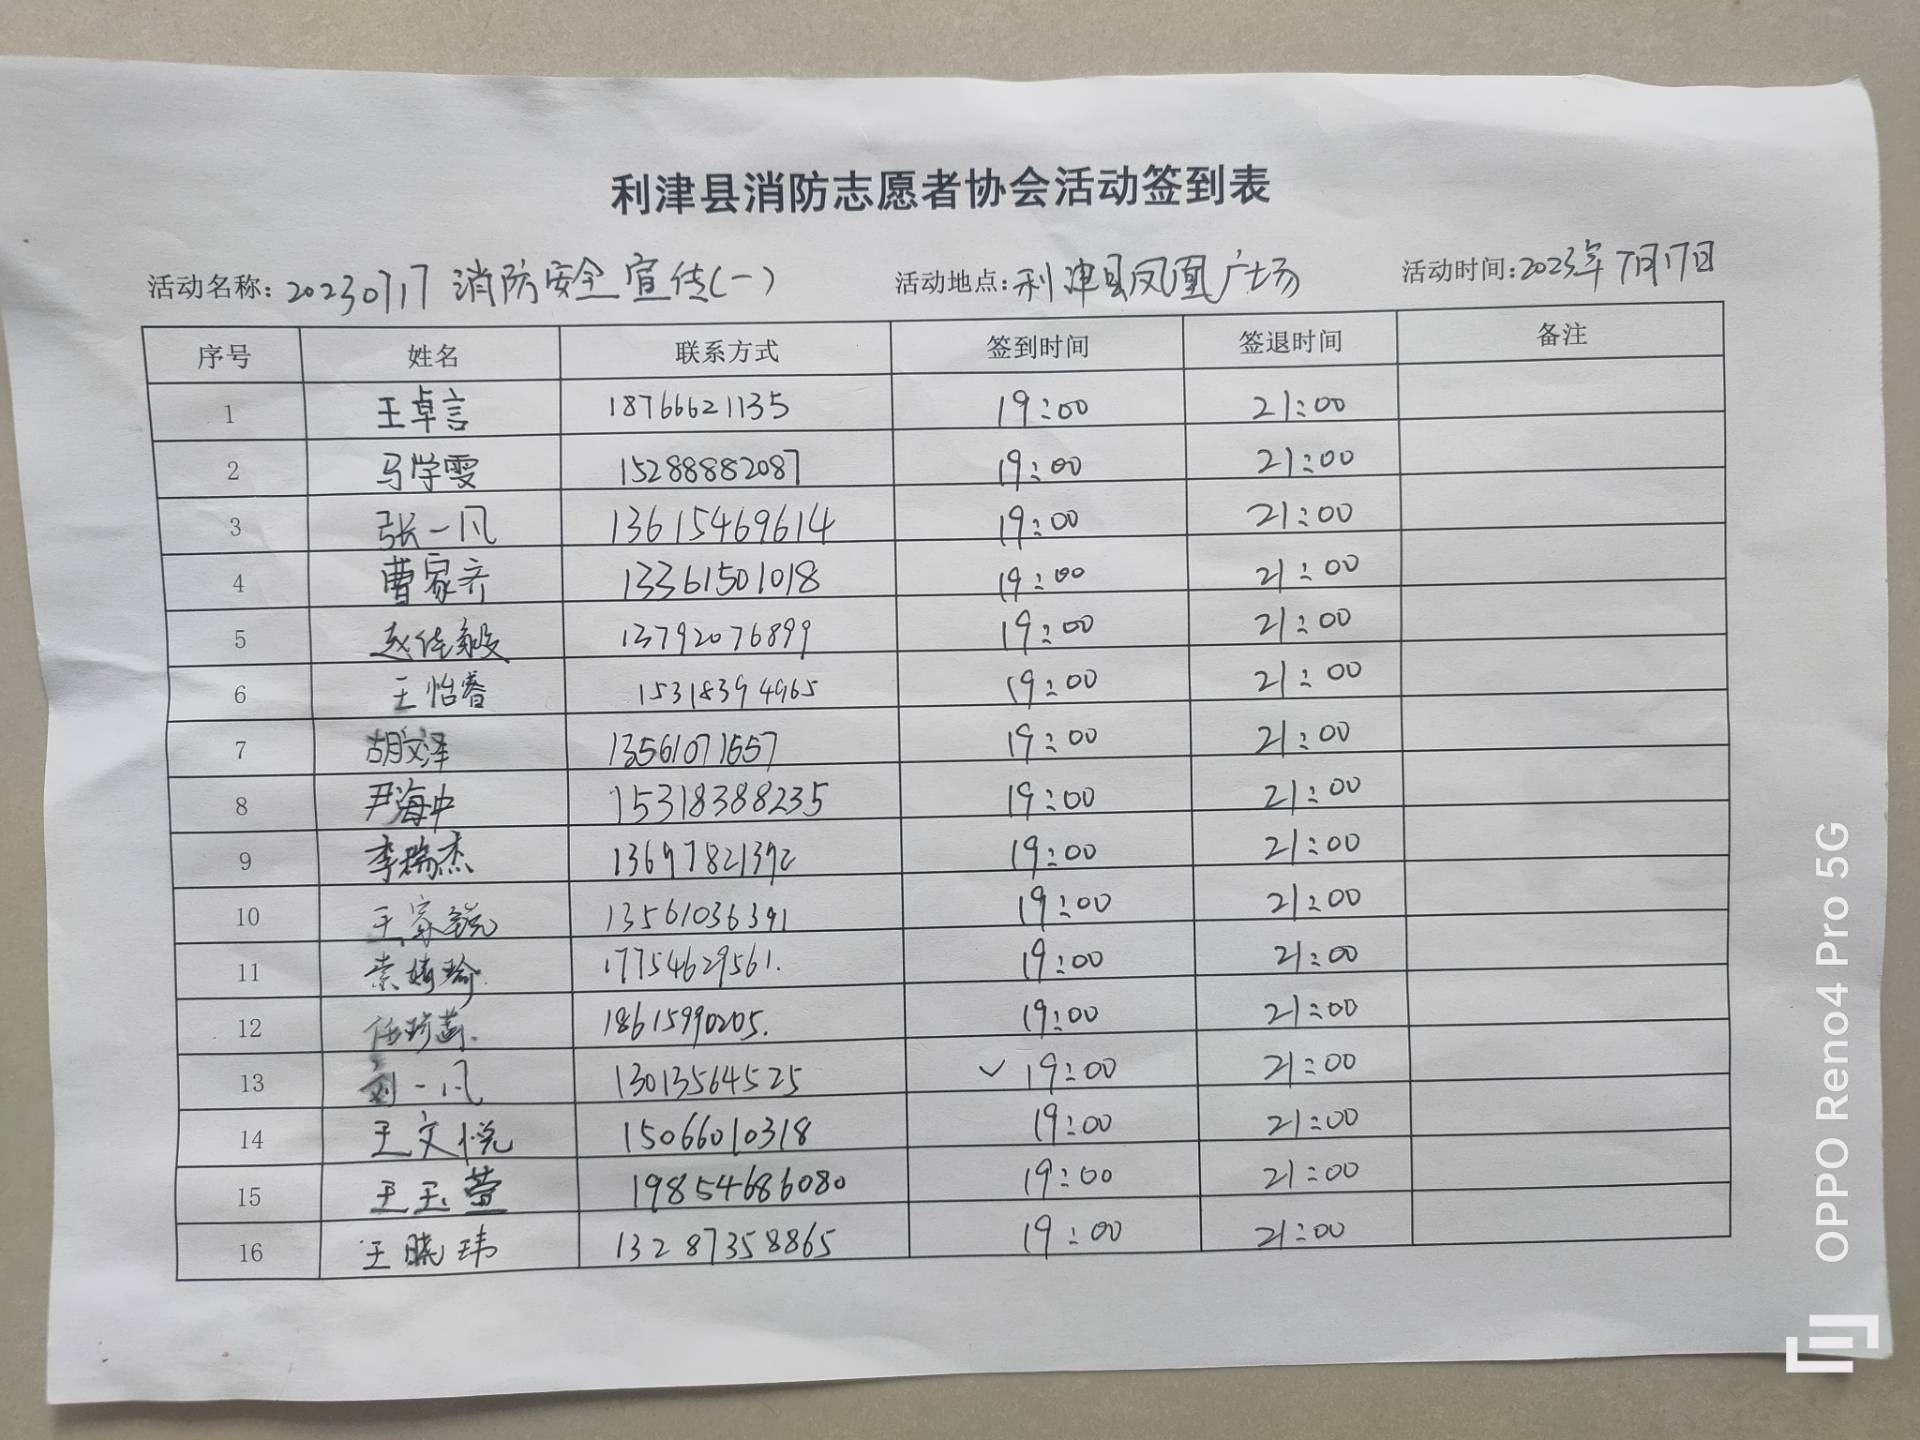 利津县消防志愿者协会活动签到表
活动名称: 20230717 消防安全宣传(一) 活动地点: 利津县凤凰广场 活动时间: 2023年7月17日
序号 姓名 联系方式 签到时间 签退时间 备注
1 王卓言 18766621135 19:00 21:00
2 马学雯 15288882087 19:00 21:00
3 张一凡 13615469614 19:00 21:00
4 曹家齐 13361501018 19:00 21:00
5 赵佳毅 13792076899 19:00 21:00
6 王怡睿 15318394965 19:00 21:00
7 胡文泽 13561071657 19:00 21:00
8 尹海中 15318388235 19:00 21:00
9 李瑞杰 13697821392 19:00 21:00
10 王家锐 13561036391 19:00 21:00
11 17754629561. 19:00 21:00
12 18615990205. 19:00 21:00
13 刘一凡 13013564525 ✓ 19:00 21:00
14 王文悦 15066010318 19:00 21:00
15 王玉萱 19854686080 19:00 21:00
16 王晓玮 13287358865 19:00 21:00
OPPO Reno4 Pro 5G